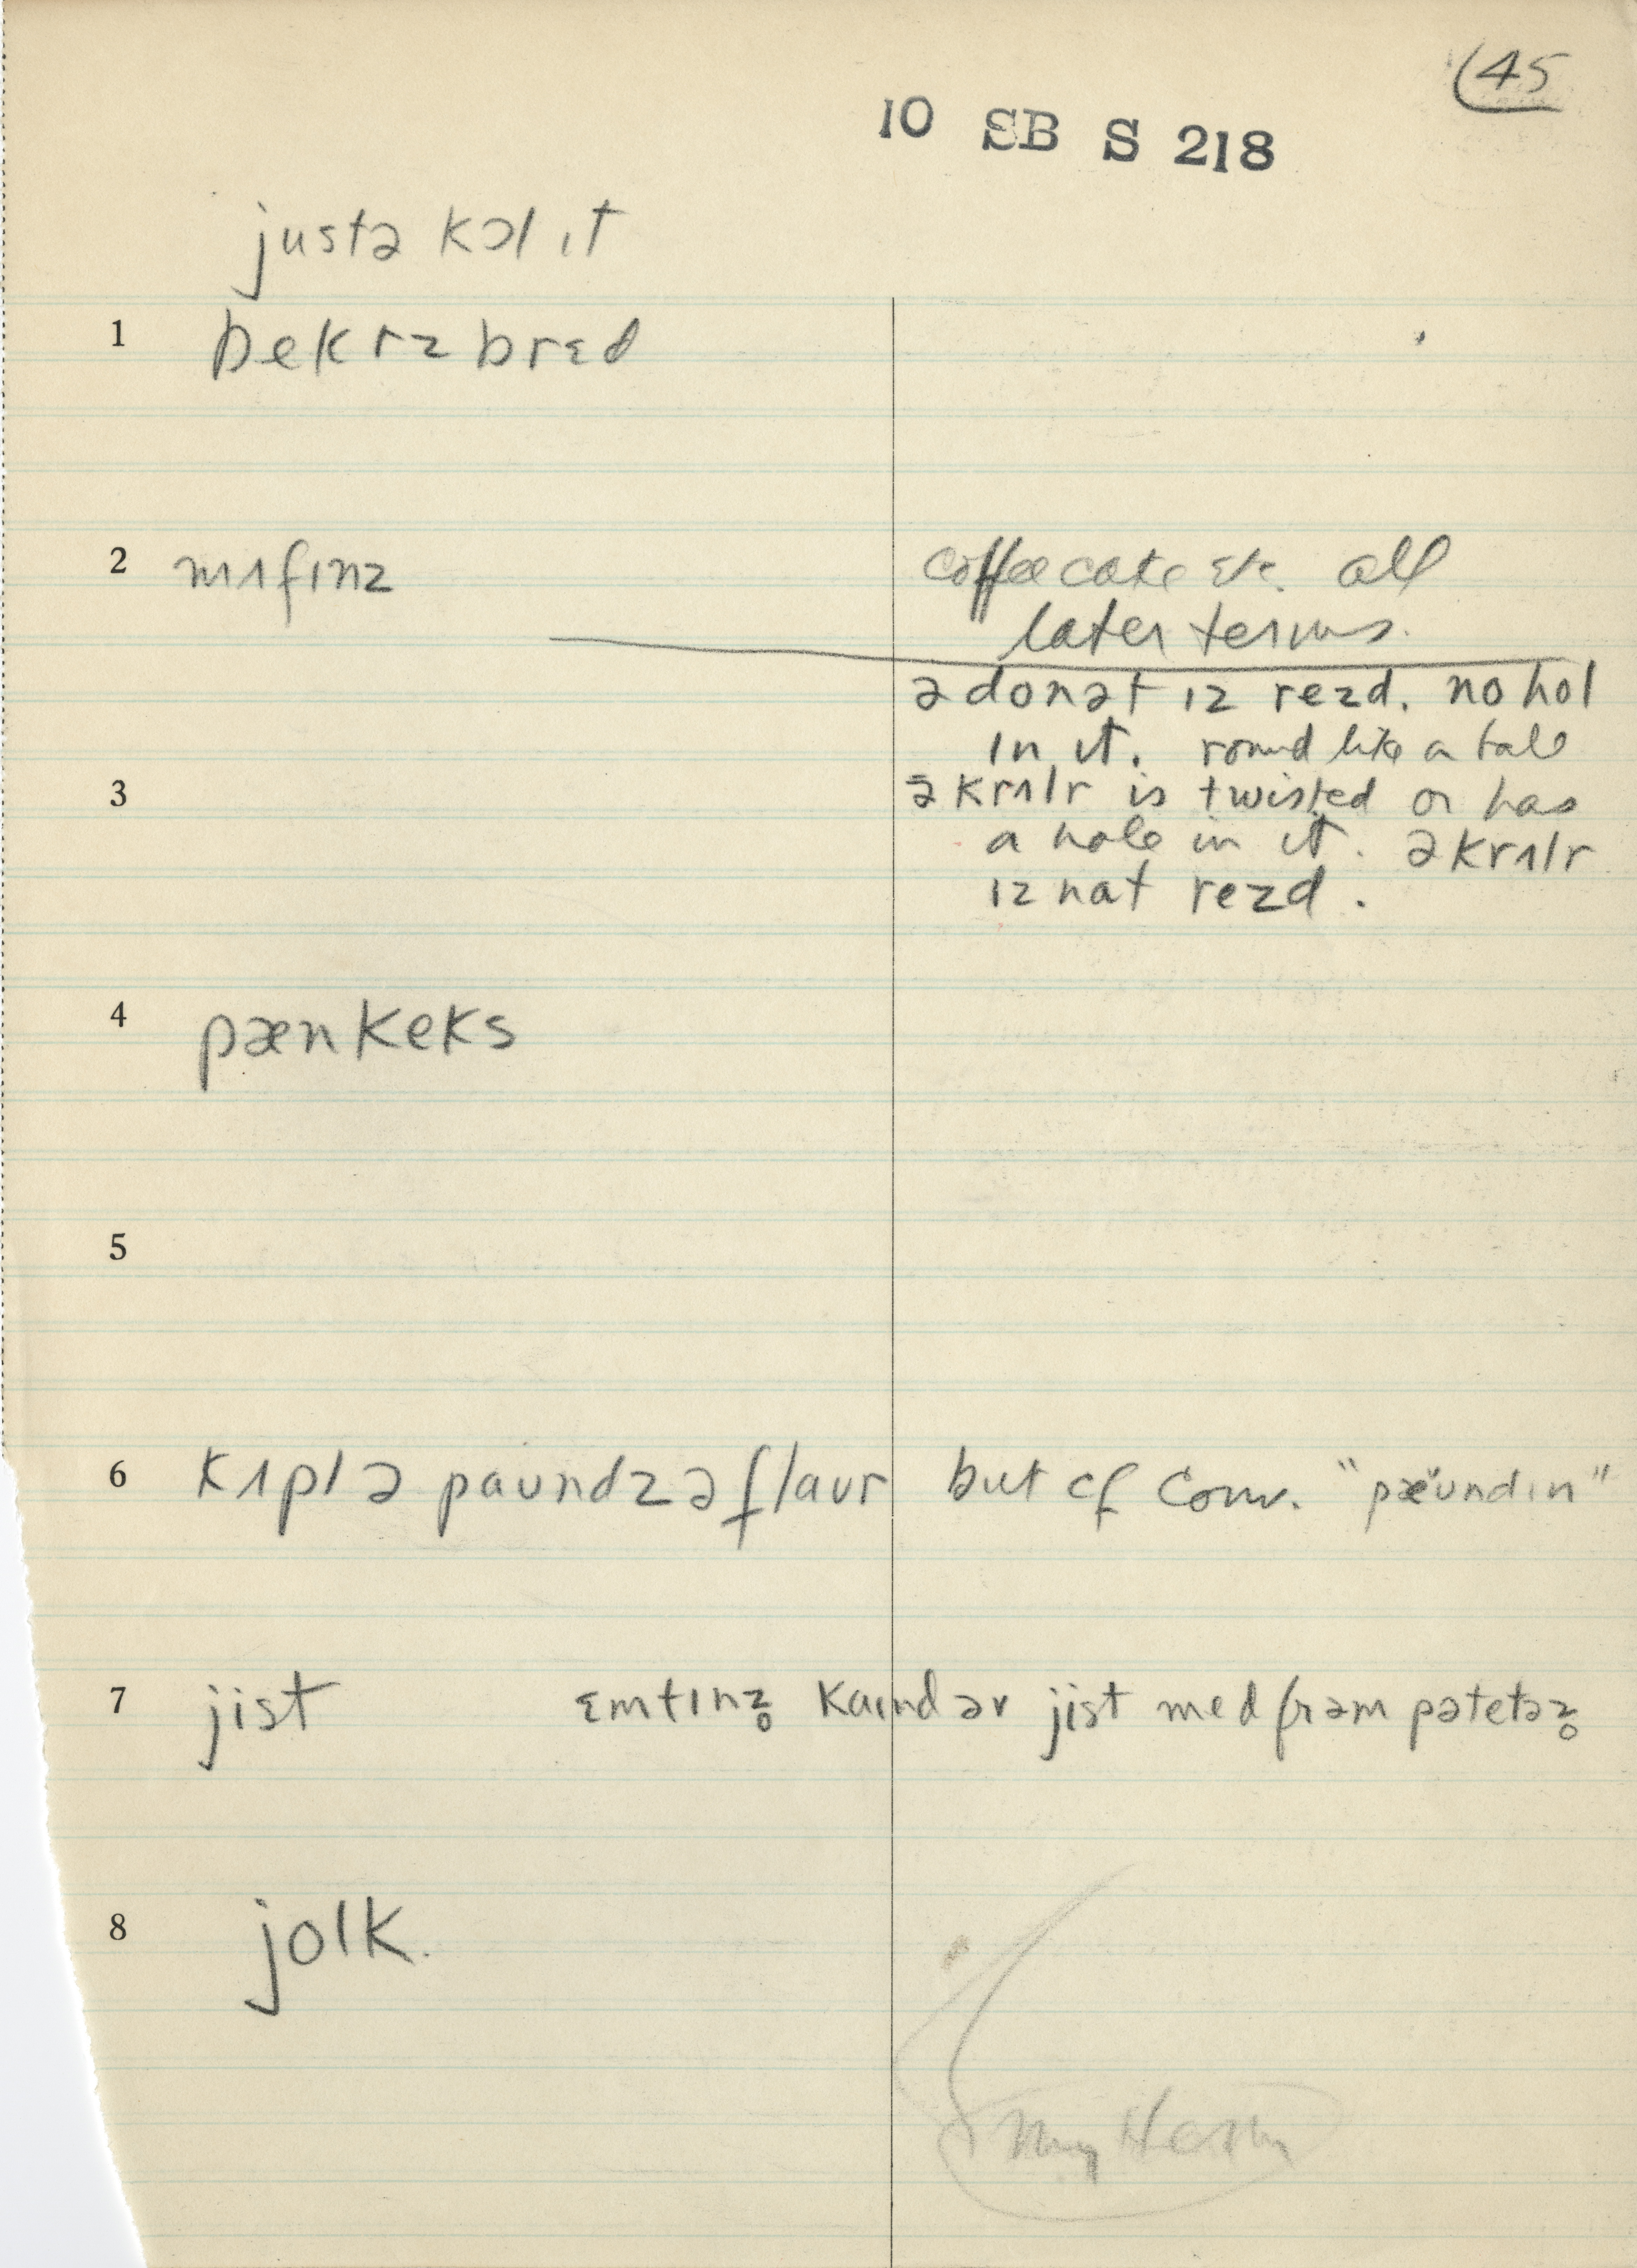 (45
10 SB S 218
justə kɔl ɪt
1 bekrz brɛd
2 mʌfɪnz coffee cake etc. all
later terms.
ə donət ɪz rezd. no hol
ɪn ɪt. round like a ball
3 ə krʌlr is twisted or has
a hole in it. ə krʌlr
ɪz nat rezd.
4 pænkeks
5
6 kʌpl ə paʊndz ə flaʊr but cf Conv. "pæʊndɪn"
7 jist ɛmtɪnz̥ kaɪnd əv jist med frəm pətetəz̥
8 jolk.